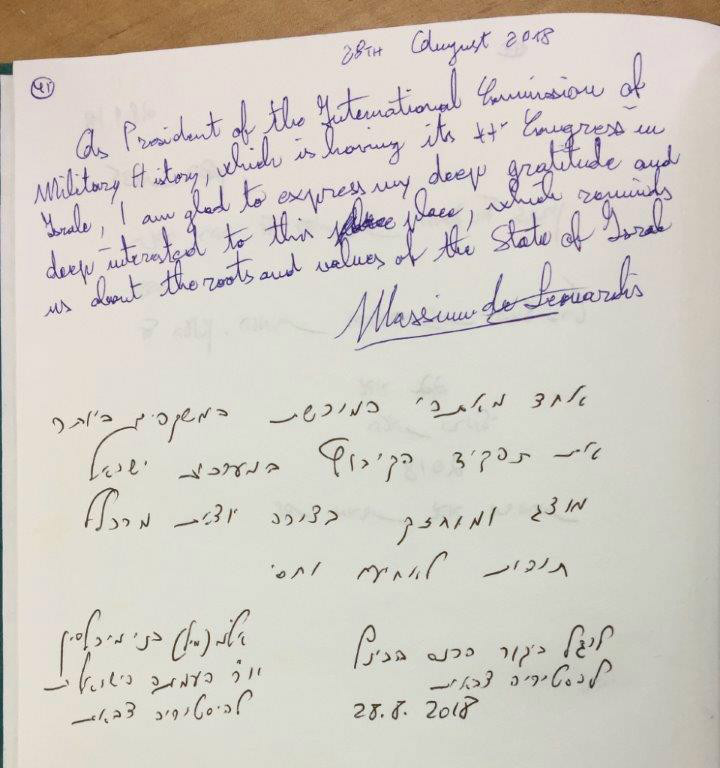 28TH August 2018
As President of the International Commission of
Military History, which is having its Congress in
Israle, I am glad to express my deep gratitude and
deep interested to this place, which reminds
us about the roots and values of the State of Israle
Massimo de Leonardis
אחד מאתרי המורשת המשקפים ביותר
את תפקיד הקיבוץ במערכות ישראל
מוצג ומוחזק בצורה יוצאת מהכלל
תודות לאוהים
אל"מ (מיל) בני מיכלסון
יו"ר העמותה הישראלית
להיסטוריה צבאית
לרגל ביקור הכנס הבינל
להסטוריה צבאית
28.8.2018